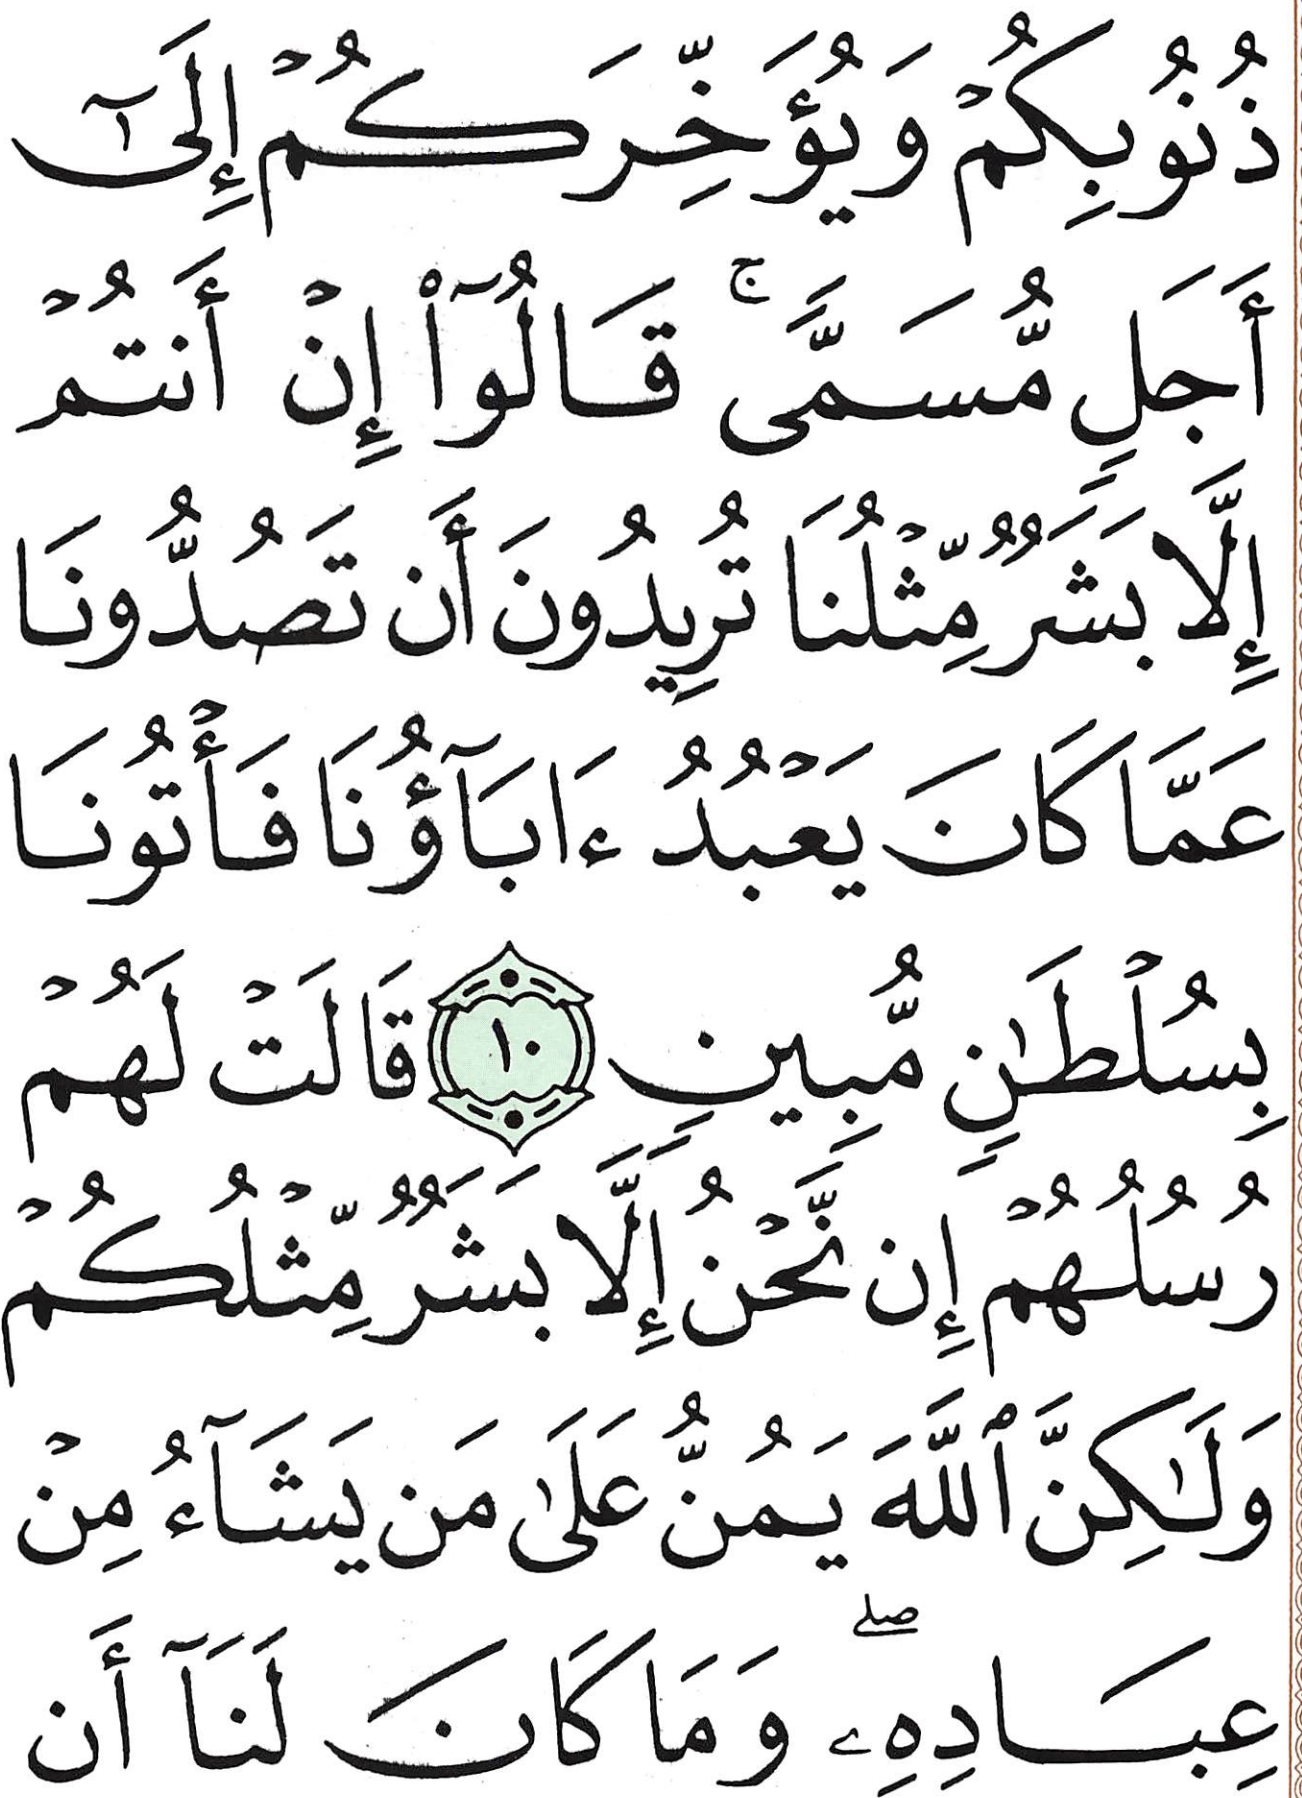 ذُنُوبِكُمۡ وَيُؤَخِّرَكُمۡ إِلَىٰٓ
أَجَلٖ مُّسَمّٗىۚ قَالُوٓاْ إِنۡ أَنتُمۡ
إِلَّا بَشَرٞ مِّثۡلُنَا تُرِيدُونَ أَن تَصُدُّونَا
عَمَّا كَانَ يَعۡبُدُ ءَابَآؤُنَا فَأۡتُونَا
بِسُلۡطَٰنٖ مُّبِينٖ ١٠ قَالَتۡ لَهُمۡ
رُسُلُهُمۡ إِن نَّحۡنُ إِلَّا بَشَرٞ مِّثۡلُكُمۡ
وَلَٰكِنَّ ٱللَّهَ يَمُنُّ عَلَىٰ مَن يَشَآءُ مِنۡ
عِبَادِهِۦۖ وَمَا كَانَ لَنَآ أَن